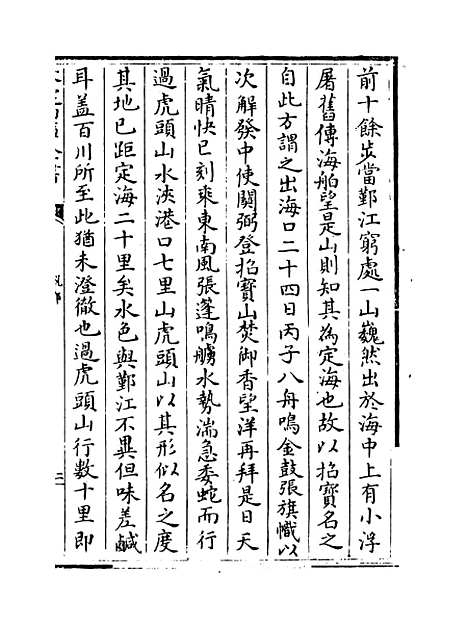 前十餘步當鄞江窮處一山巍然出於海中上有小浮
屠舊傳海舶望是山則知其為定海也故以招寶名之
自此方謂之出海口二十四日丙子八舟鳴金鼓張旗幟以
次解發中使關弼登招寶山焚御香望洋再拜是日天
氣晴快巳刻乘東南風張蓬鳴艣水勢湍急委蛇而行
過虎頭山水浹港口七里山虎頭山以其形似名之度
其地已距定海二十里矣水色與鄞江不異但味差鹹
耳盖百川所至此猶未澄徹也過虎頭山行數十里即
三